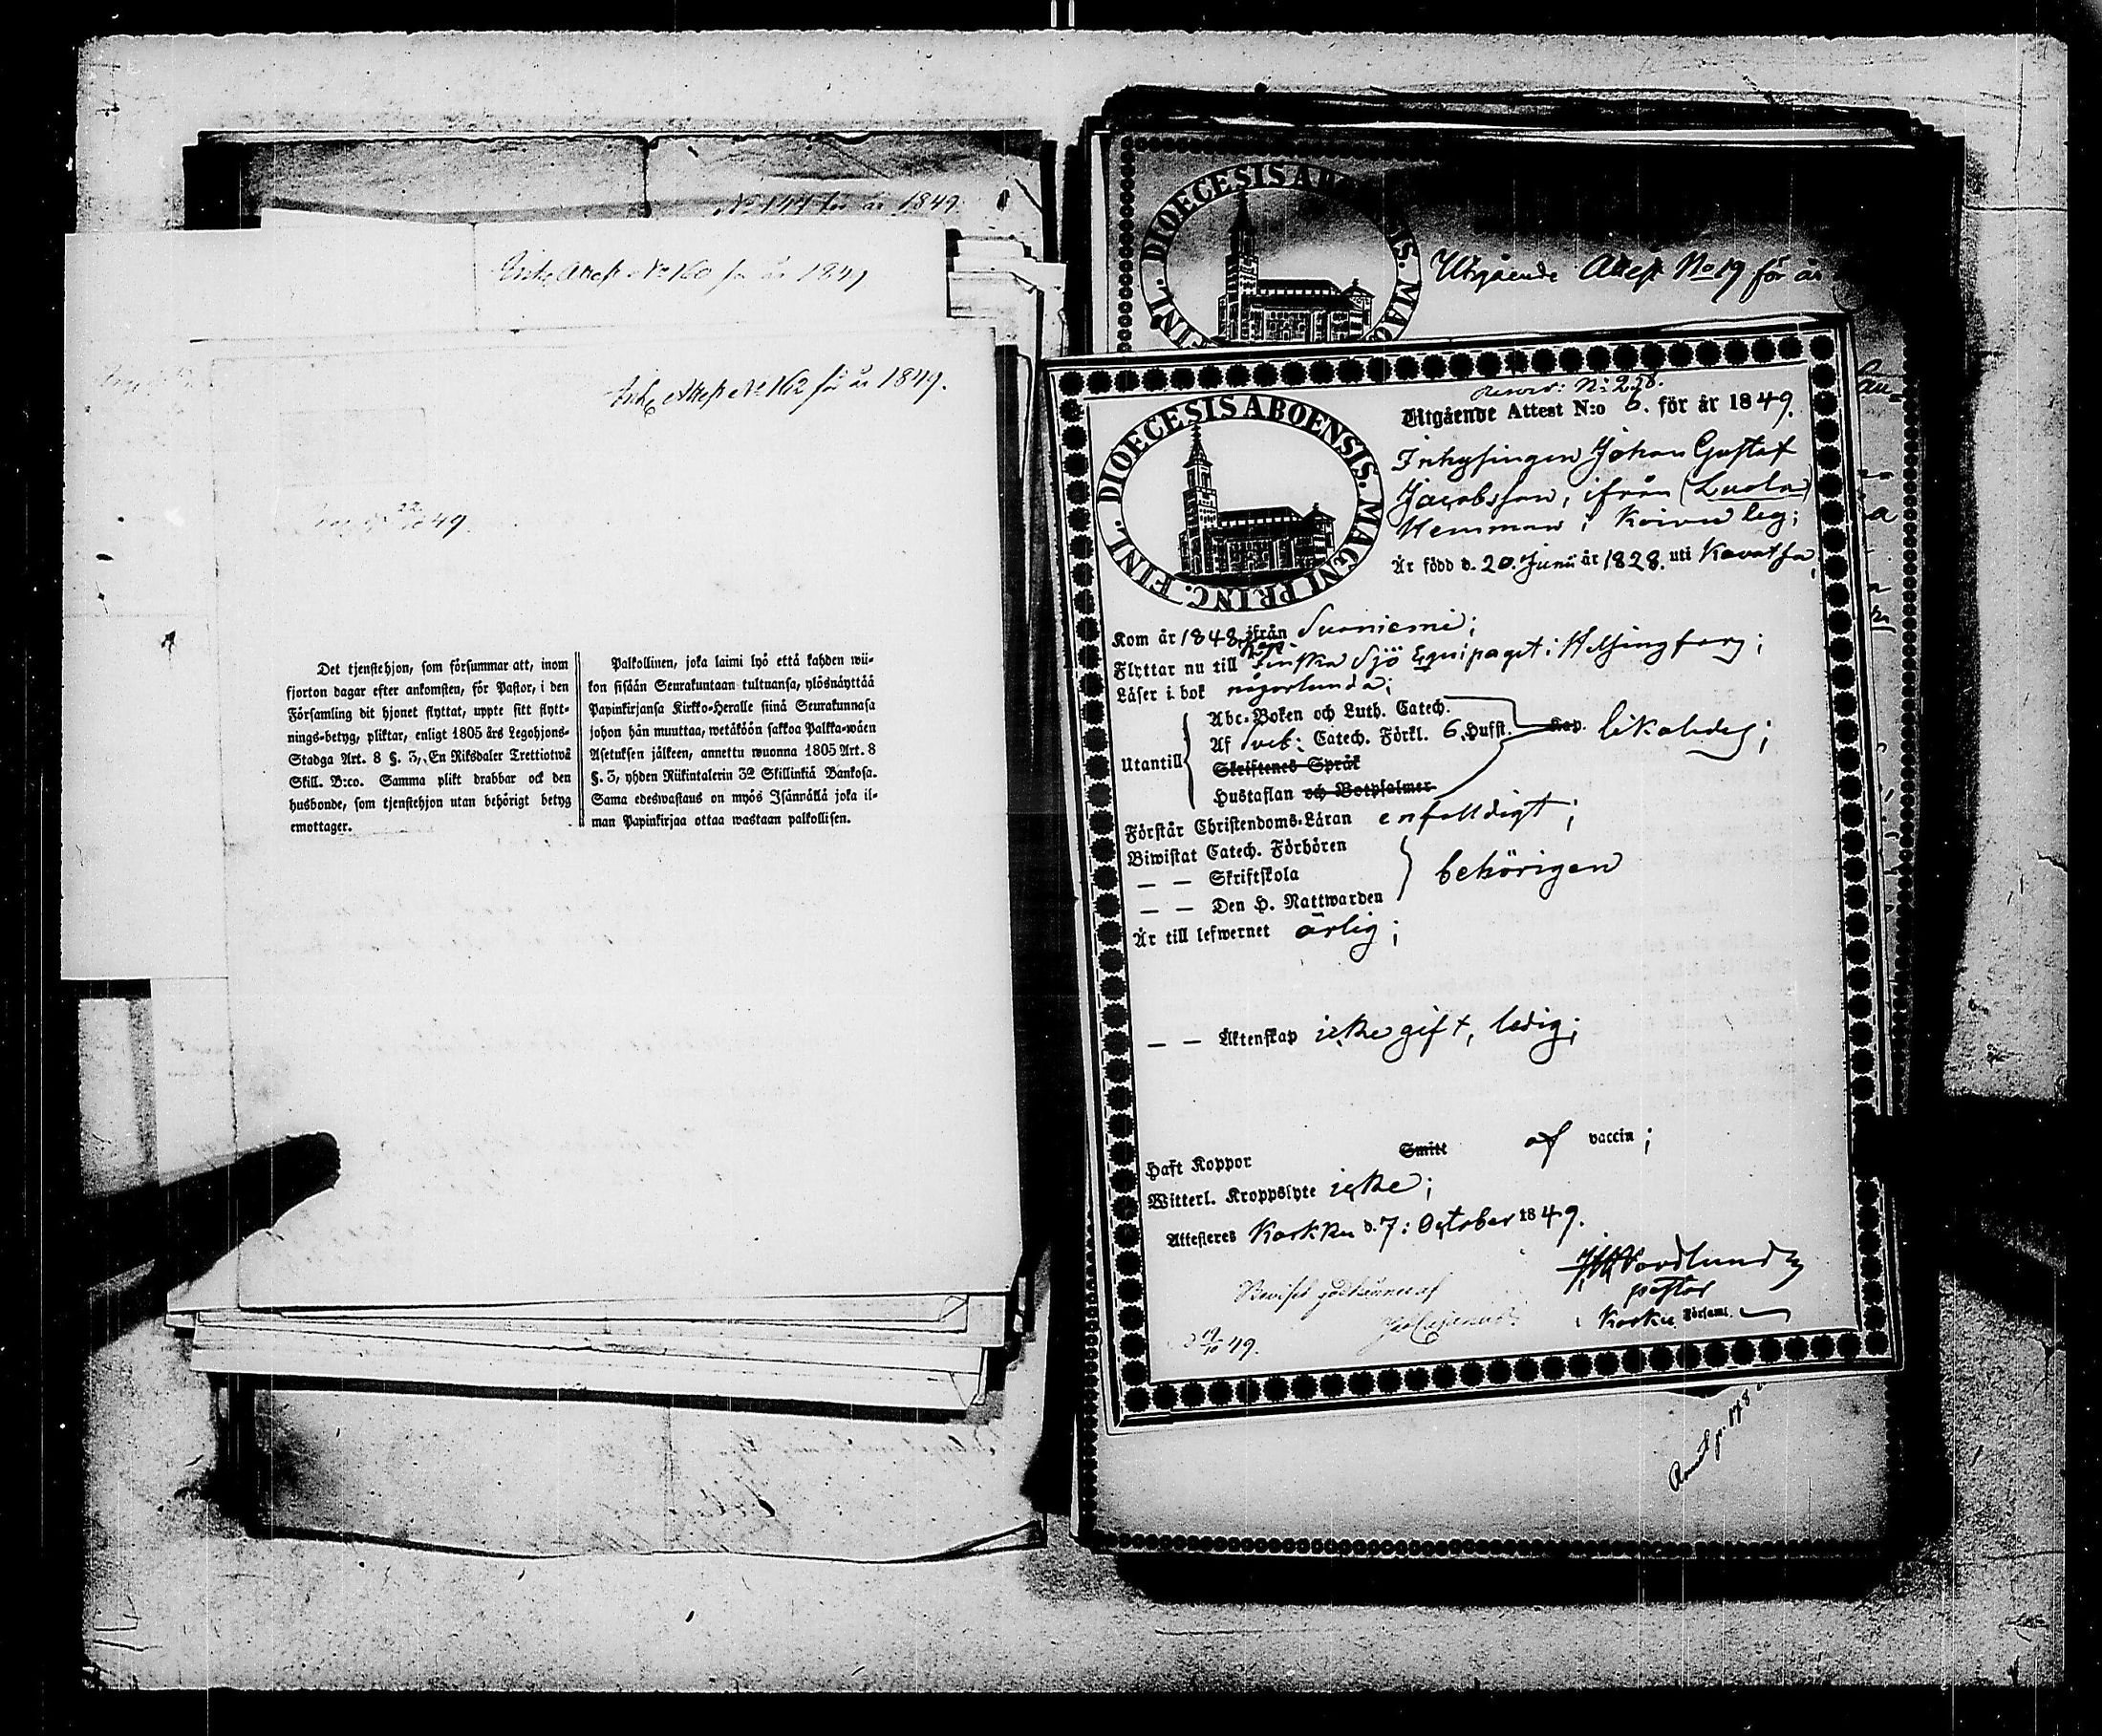 No 144 för år 1849.
Attest No 160 för år 1849
Attest No 162 för år 1849.
22/10 49.
Det tjenstehjon, som försummar att, inom
fjorton dagar efter ankomsten, för Pastor, i den
Församling dit hjonet flyttat, uppte sitt flytt-
nings-betyg, pliktar, enligt 1805 års Legohjons-
Stadga Art. 8 §. 3, En Riksdaler Trettiotwå
Skill. B:co. Samma plikt drabbar ock den
husbonde, som tjenstehjon utan behörigt betyg
emottager.
Palkollinen, joka laimi lyö että kahden wii-
kon sisään Seurakuntaan tultuansa, ylösnäyttää
Papinkirjansa Kirkko-Heralle siinä Seurakunnasa
johon hän muuttaa, wetäköön sakkoa Palkka-wäen
Asetuksen jälkeen, annettu wuonna 1805 Art. 8
§. 3, yhden Riikintalerin 32 Skillinkiä Bankosa.
Sama edeswastaus on myös Isännällä joka il-
man Papinkirjaa ottaa wastaan palkollisen.
DIOECESIS AB IS. MAG FINL.
Utgående Attest No 19 för år
DIOECESIS ABOENSIS. MAGNI PRINC. FINL.
No 258.
Utgående Attest N:o 6. för år 1849.
Inhysingen Johan Gustaf
Jacobsson, ifrån (Luola)
Hemman i Koivu leg;
Är född d. 20. Junii år 1828. uti Kavatsa,
Kom år 1848. ifrån Suoniemi;
Flyttar nu till Finska Sjö Equipaget i Helsingfors;
Läser i bok någorlunda;
Utantill
Abc-Boken och Luth. Catech.
Af Sveb: Catech. Förkl. 6. Hufst. Kap. likaledes;
Skriftenes Språk
Hustaflan och Botpsalmer
Förstår Christendoms-Läran enfalldigt;
Biwistat Catech. Förhören
— — Skriftskola behörigen
— — Den H. Nattwarden
Är till lefwernet ärlig;
— — Äktenskap icke gift, ledig;
Haft Koppor Smitt af vaccin;
Witterl. Kroppslyte icke;
Attesteres Karkku d. 7: October 1849.
Nordlund
pastor
i Karkku Församl.
19/10 49.